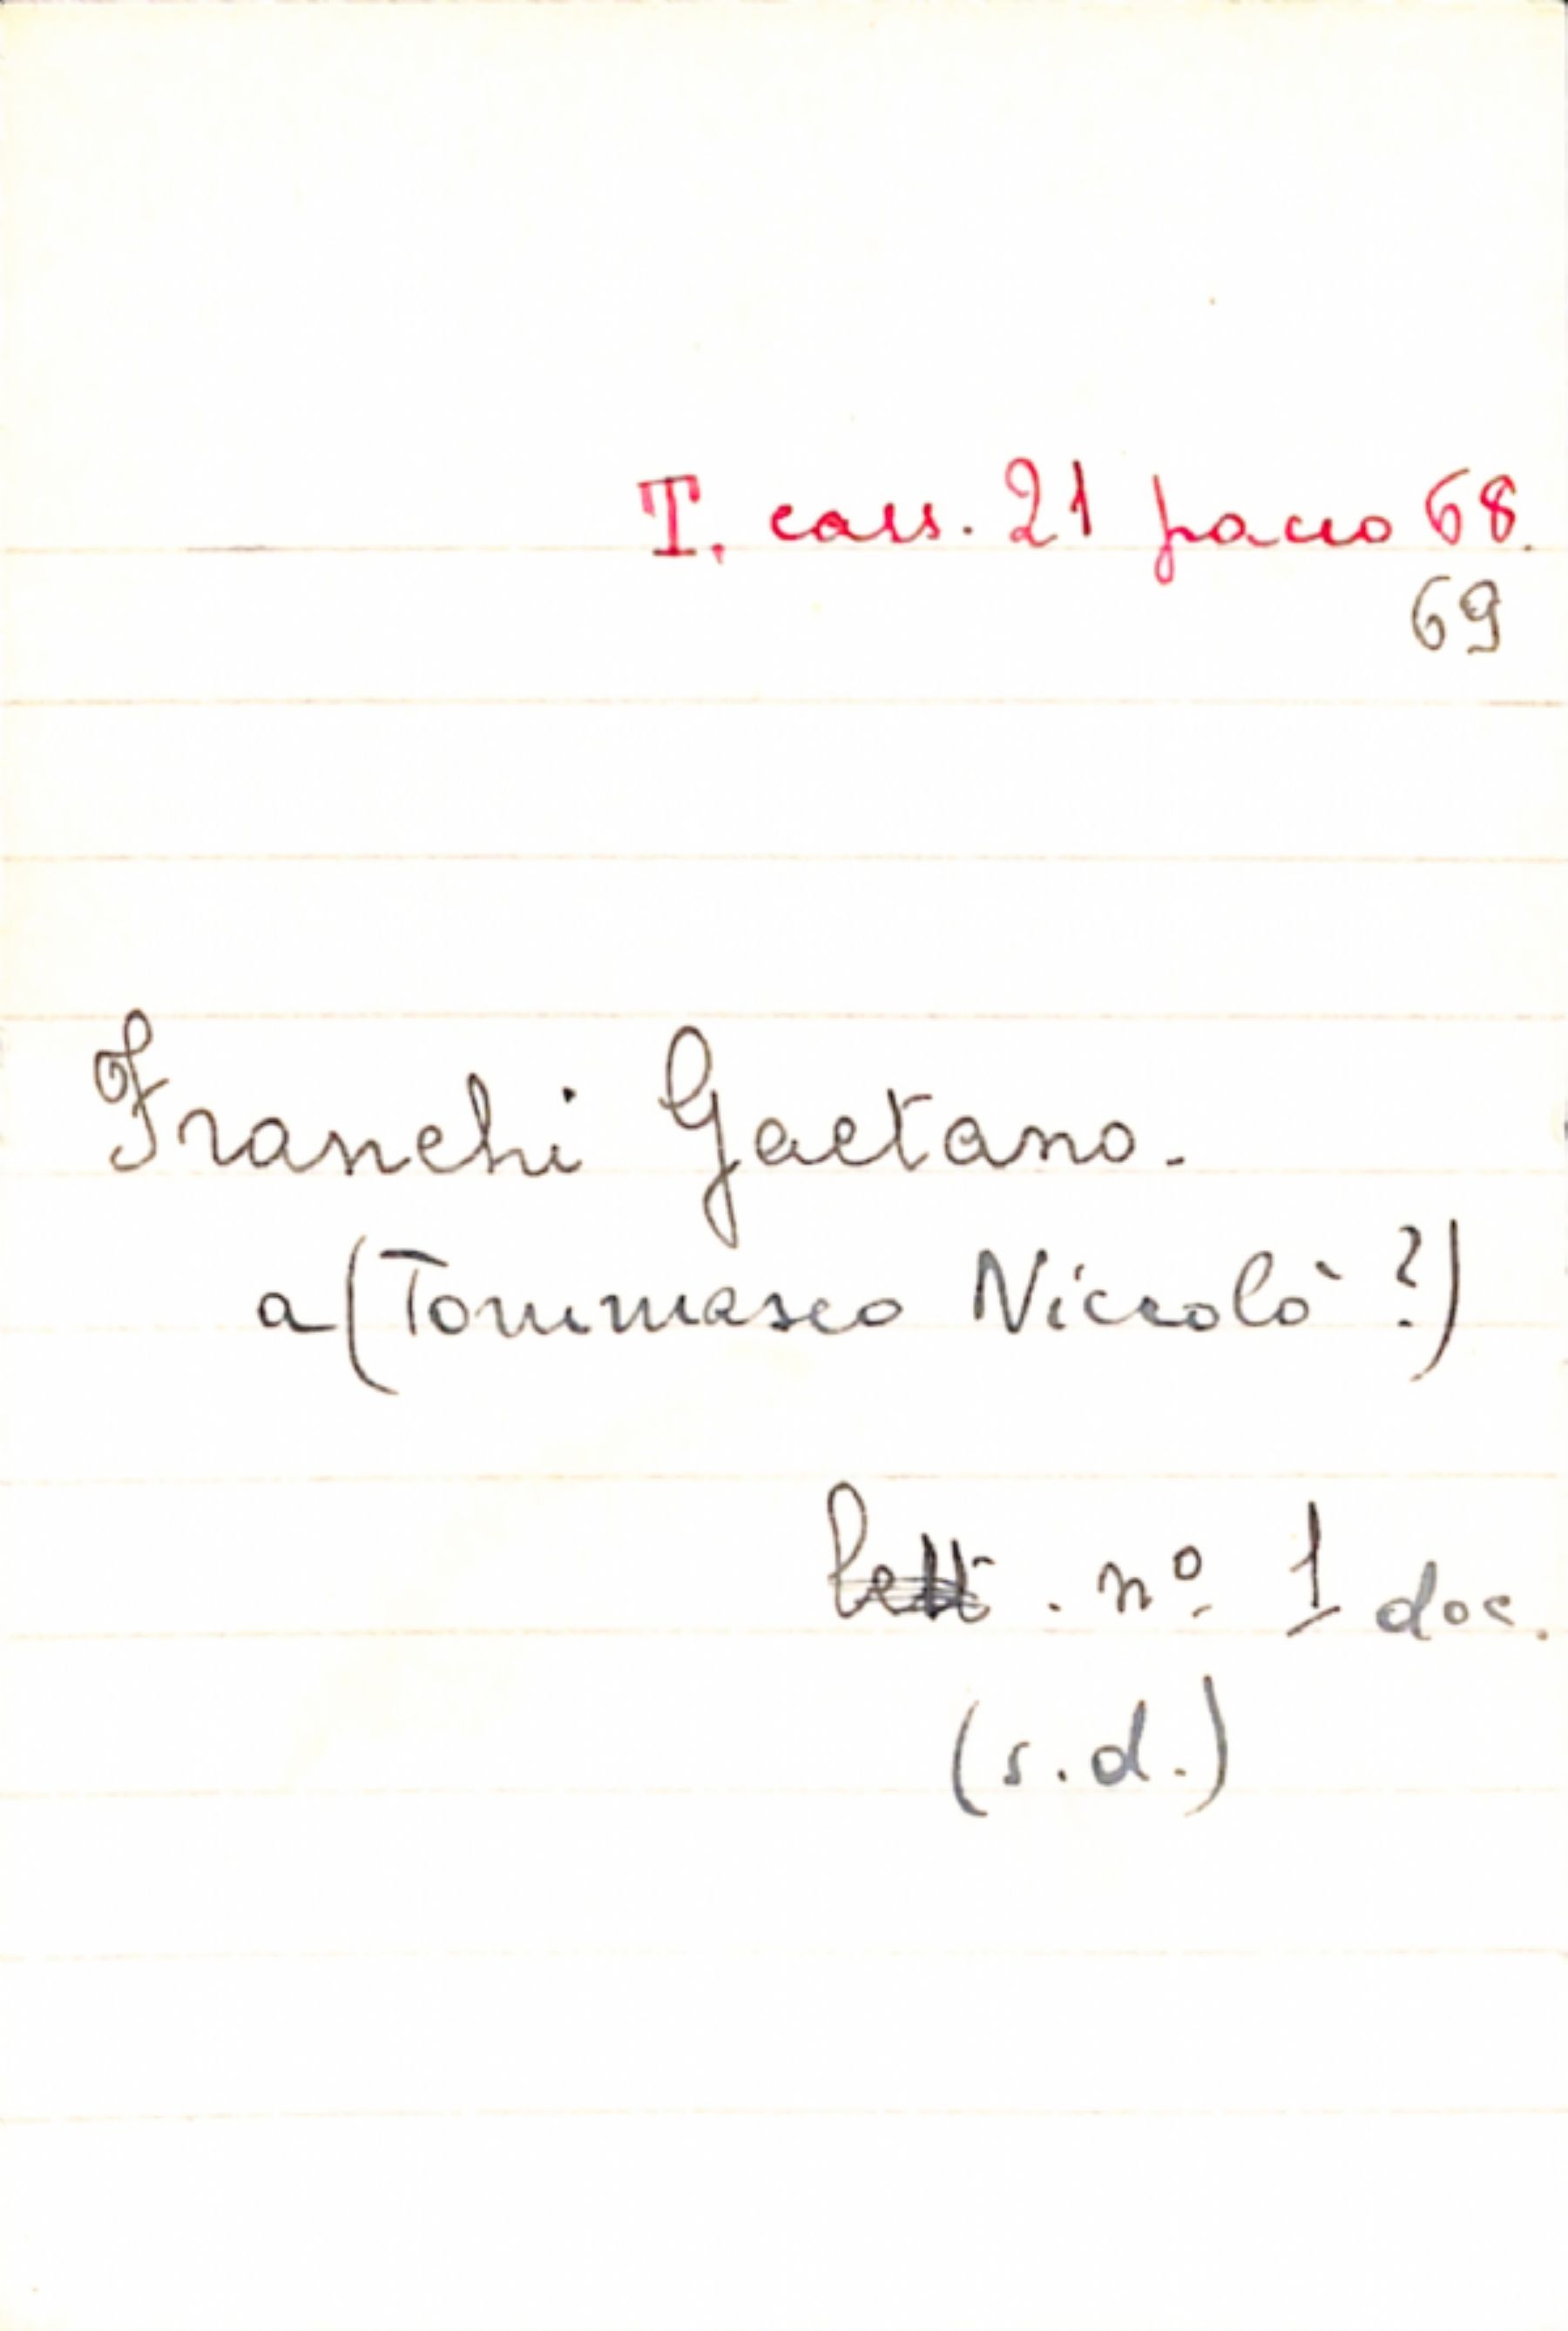 T. cass. 21 pacco 68.
69
Franchi Gaetano.
a (Tommaseo Niccolò?)
lett. nº 1 doc.
(s.d.)